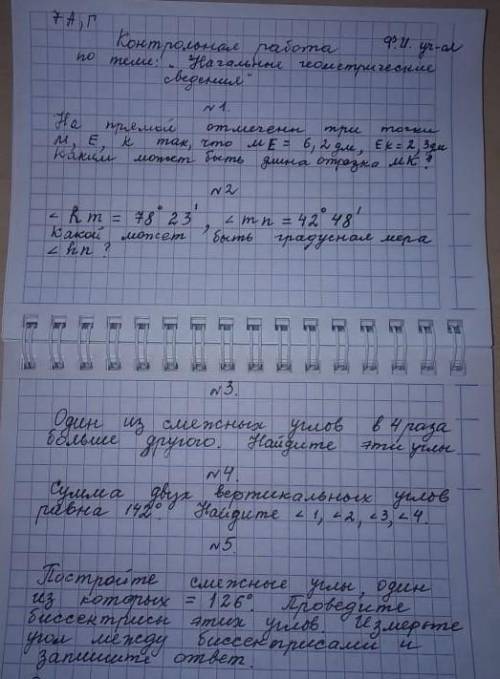 7 А, Г
Контрольная работа Ф.И. уч-ся
по теме: „Начальные геометрические
сведения"
№1.
На прямой отмечены три точки
М, Е, К так, что МЕ = 6,2 дм, ЕК = 2,3 дм
Каким может быть длина отрезка МК?
№2
∠hm = 78° 23', ∠mn = 42° 48'
Какой может быть градусная мера
∠hn?
№3.
Один из смежных углов в 4 раза
больше другого. Найдите эти углы
№4.
Сумма двух вертикальных углов
равна 142°. Найдите ∠1, ∠2, ∠3, ∠4.
№5.
Постройте смежные углы, один
из которых = 126°. Проведите
биссектрисы этих углов. Измерьте
угол между биссектрисами и
запишите ответ.